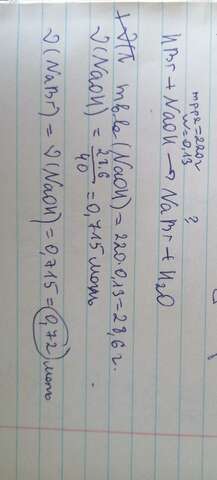 mрр2=220г
w=0,13 ?
HBr + NaOH → NaBr + H₂O
m в.ва (NaOH) = 220·0,13 = 28,6 г.
ν(NaOH) = 28,6/40 = 0,715 моль
ν(NaBr) = ν(NaOH) = 0,715 = 0,72 моль